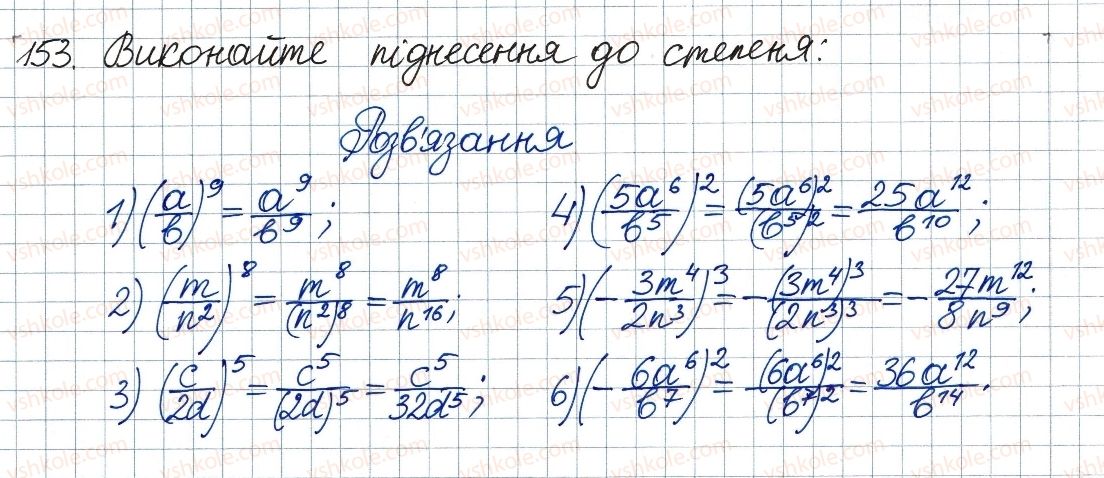 153. Виконайте піднесення до степеня:
Розв'язання
1) (a/b)^9 = a^9/b^9;
2) (m/n^2)^8 = m^8/(n^2)^8 = m^8/n^16;
3) (c/2d)^5 = c^5/(2d)^5 = c^5/32d^5;
4) (5a^6/b^5)^2 = (5a^6)^2/(b^5)^2 = 25a^12/b^10;
5) (-3m^4/2n^3)^3 = -(3m^4)^3/(2n^3)^3 = -27m^12/8n^9;
6) (-6a^6/b^7)^2 = (6a^6)^2/(b^7)^2 = 36a^12/b^14.
vshkole.com